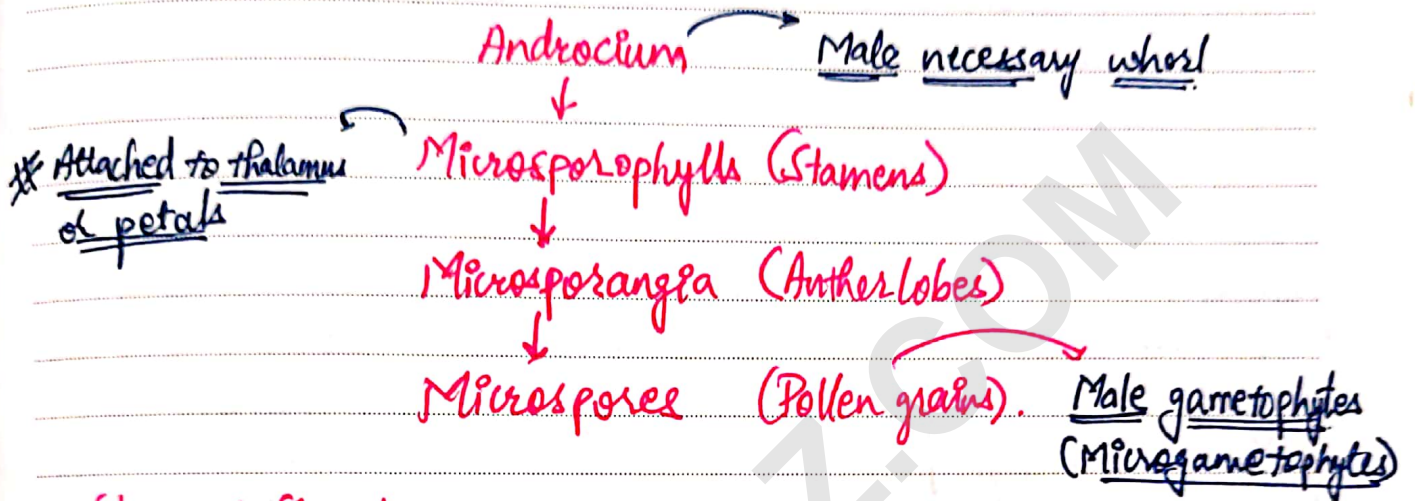 Androcium Male necessary whorl
Microsporophylls (Stamens)
** Attached to thalamus
or petals
Microsporangia (Anther lobes)
Microspores (Pollen grains). Male gametophytes
(Microgametophytes)
Z.COM